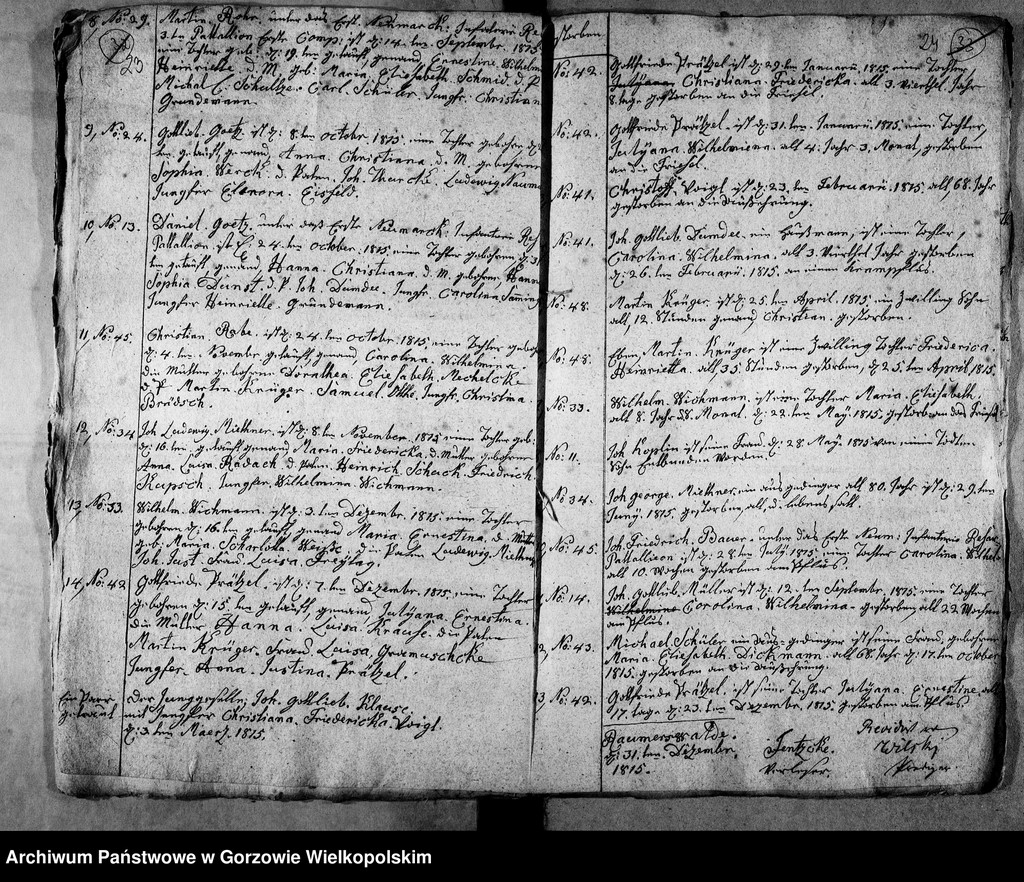 8, No: 29.
Martin, Rohr, unter das Erst. Neumarck. Infanterie Re
3.ten Battallion Erste Comp: ist d: 14. ten Septembr. 1815
eine Tochter geb: d: 19. ten getauft, genand, Ernestine. Wilhelm
Heinriette, d. M. geb: Maria. Eliesabeth. Schmid d. P.
Michal C. Schultze. Carl. Schüler. Jungfr. Christian
Grundemann.
23
9, No: 24.
Gottlieb. Goetz. ist d: 8. ten October. 1815. eine Tochter gebohren d:
ten getauft, genand, Anna. Christianna. d. M. gebohrne
Sophia. Werck. d. Paten. Joh. Ludewig. Naum
Jungfer Elenora. Eisfeld.
10, No: 13.
Daniel. Goetz. unter das Erste Neumarck. Infanterie Res
Battallion ist d. 24. ten October. 1815. eine Tochter gebohren, d: 31
ten getauft, genand Hanna. Christiana. d. M. gebohrne, Hann
Sophia Dunst. d. P. Joh. Dumdee. Jungfr. Carolina,
Jungfer Heinrielle. Gründemann.
11, No: 45.
Christian. Rabe. ist d: 24. ten October. 1815, eine Tochter geboh
d: 4. ten. November getauft, genand, Carolina. Wilhelmina.
die Mutter gebohrne Dorathea. Eliesabeth. Mechelcke
d. P. Marten Krüger. Samuel. Otto. Jungfr. Christina.
Brädsch.
12, No: 34
Joh. Ludewig. Miethner. ist d: 8. ten November. 1815 eine Tochter geb:
d: 16. ten, getauft genand Maria. Friedericka. d. Mutter gebohrne
Anna. Luisa. Radach. d. Paten. Heinrich. Schack. Friedrich.
Kapsch. Jungfer. Wilhelmina. Wichmann.
13, No: 33.
Wilhelm. Wichmann. ist d: 3. ten Dezembr. 1815. eine Tochter
gebohren d: 16. ten getauft genand Maria. Ernestina. d. Mutter
geb: Maria. Scharlotta. Weisse. die Paten. Ludewig. Miethner
Joh. Just. Frau. Luisa. Freytag.
14, No: 42
Gottfriede Prätzel. ist d: 7. ten Dezembr. 1815. eine Tochter
gebohren d: 15. ten getauft, genand, Julyana. Ernestina.
die Mutter, Hanna. Luisa. Krause. die Paten
Martin Krüger. Frauen, Luisa,
Jungfer. Anna. Justina. Prätzel.
Ein Paar
getraut
der Junggeselle, Joh. Gottlieb. Klause.
mit Jungfer Christiana. Friedericka. Voigl.
d: 3. ten Maerz. 1815.
24
storben
No: 42.
Gottfriede Prätzel ist d: 29. ten Januarii. 1815. eine Tochter
Christiana. Friedericka. alt 3. Viertel. Jahr
8. tage gestorben an die Friesel.
No: 42.
Gottfriede. Prätzel. ist d: 31. ten. Januarii. 1815. eine Tochter,
Julyana. Wilhelmiena. alt 4. Jahr 3. Monat, gestorben
an die Friesel.
No: 41.
Christoff. Voigl ist d: 23. ten Februarii. 1815. alt, 68. Jahr
gestorben an die Auszehrung.
No: 41.
Joh. Gottlieb. Dumdee. ein Hausmann, ist eine Tochter,
Carolina. Wilhelmina. alt 3. Viertel Jahr gestorben
d: 26. ten Februarii. 1815. an einen Krampflus.
No: 48.
Martin Krüger. ist d: 25. ten April. 1815. ein Zwilling Sohn
alt, 12. Stunden genand, Christian. gestorben.
No: 48.
Eben, Martin. Krüger ist eine Zwilling Tochter Friederica.
Heinrietta. alt, 35. Stunden gestorben, d: 25. ten April. 1815
No: 33.
Wilhelm. Wichmann. ist eine Tochter Maria. Eliesabeth.
alt 8. Jahr Monat. d: 22. ten May. 1815. gestorben an das Friesel
No: 11.
Joh Koplin ist seine Frau. d: 28. May. 1815 von einen Todten
Sohn Entbunden worden.
No: 34.
Joh George. Miethner. ein ausgedinger alt 80. Jahr ist d: 29. ten
Juny. 1815. gestorben, alt, d. lebens satt.
No: 45.
Joh. Friedrich. Bauer. unter das Erste Neum: Infanterie Reser
Battallion ist d: 28. ten July 1815. eine Tochter Carolina. Wilhel
alt 10. Wochen gestorben am Schlus.
No: 14.
Joh. Gottlieb. Müller ist d: 12. ten September. 1815. eine Tochter
Wilhelmine Carolina. Wilhelmina. gestorben, alt 22. Wochen
am Schlus.
No: 43.
Michael. Schüler ein ausgedinger ist seine Frau, gebohrne
Maria. Eliesabeth. Dickmann. alt 68. Jahr. d: 17. ten October
1815. gestorben an die Auszehrung.
No: 42.
Gottfriede Prätzel. ist seine Tochter Julyana. Ernestine, alt
17. tage. d: 23. ten Dezembr. 1815 gestorben am Schlus
Raumerswalde.
d: 31. ten. Dezembr.
1815.
Jentzcke.
Vorleser.
Revidirt
Wilsky
Prediger.
Archiwum Państwowe w Gorzowie Wielkopolskim